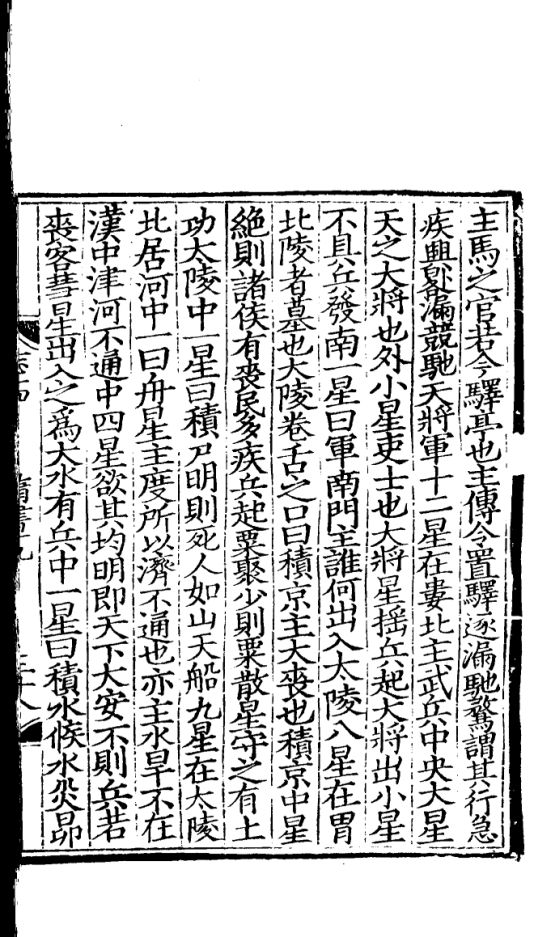 主馬之官若今驛亭也主傳令置驛逐漏馳騖謂其行急
疾與晷漏競馳天將軍十二星在婁北主武兵中央大星
天之大將也外小星吏士也大將星揺兵起大將出小星
不具兵發南一星曰軍南門主誰何出入太陵八星在胃
北陵者墓也大陵卷舌之口曰積京主大喪也積京中星
絶則諸侯有喪民多疾兵起粟聚少則粟散星守之有土
功太陵中一星曰積尸明則死人如山天船九星在太陵
北居河中一曰舟星主度所以濟不通也亦主水旱不在
漢中津河不通中四星欲其均明即天下大安不則兵若
喪客彗星出入之爲大水有兵中一星曰積水候水災昴
志十四 隋書十九